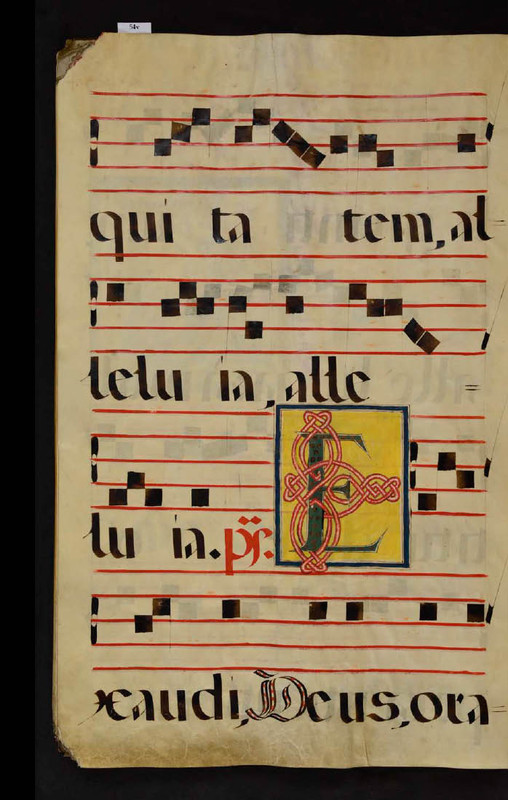 54v.
qui ta tem, al=
lelu ia, alle=
lu ia. ps. E
xaudi, Deus, ora=